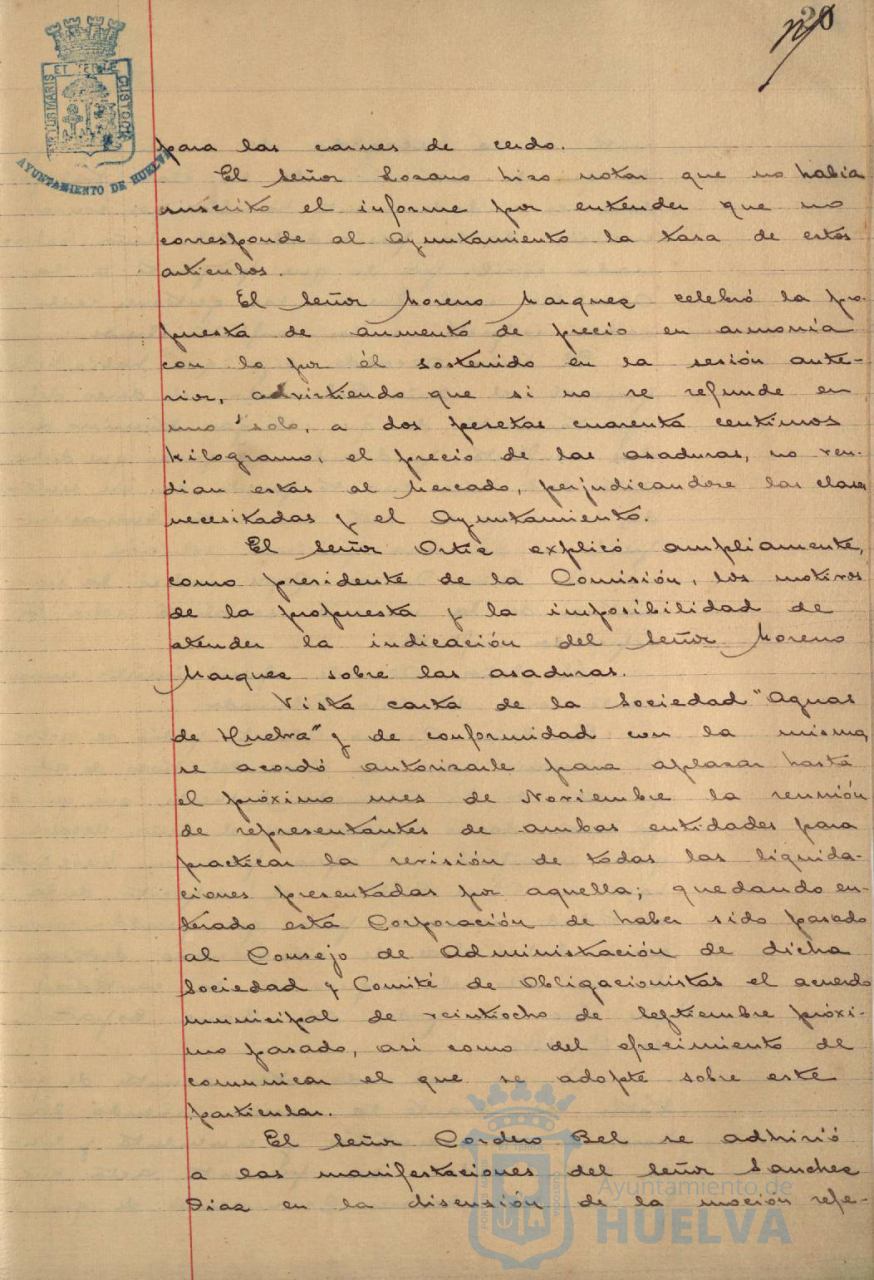 20
PORTUS MARIS ET TERRE CUSTODIA
AYUNTAMIENTO DE HUELVA
para las carnes de cerdo.
El Señor Lozano hizo notar que no había
suscrito el informe por entender que no
corresponde al Ayuntamiento la tasa de estos
articulos.
El Señor Moreno Marquez celebró la pro-
puesta de aumento de precio en armonia
con lo por él sostenido en la sesión ante-
rior, advirtiendo que si no se refunde en
uno solo, a dos pesetas cuarenta centimos
kilogramo, el precio de las asaduras, no ven-
dian estas al Mercado, perjudicandose las clases
necesitadas y el Ayuntamiento.
El Señor Ortiz explicó ampliamente,
como presidente de la Comisión, los motivos
de la propuesta y la imposibilidad de
atender la indicación del Señor Moreno
Marquez sobre las asaduras.
Vista carta de la Sociedad "Aguas
de Huelva" y de conformidad con la misma,
se acordó autorizarle para aplazar hasta
el próximo mes de Noviembre la reunión
de representantes de ambas entidades para
practicar la revisión de todas las liquida-
ciones presentadas por aquella; quedando en-
terado esta Corporación de haber sido pasado
al Consejo de Administración de dicha
Sociedad y Comité de Obligacionistas el acuerdo
municipal de veintiocho de Septiembre próxi-
mo pasado, asi como del ofrecimiento de
comunicar el que se adopte sobre este
particular.
El Señor Cordero Bel se adhirió
a las manifestaciones del Señor Sanchez
Diaz en la discusión de la moción refe-
Ayuntamiento de
HUELVA